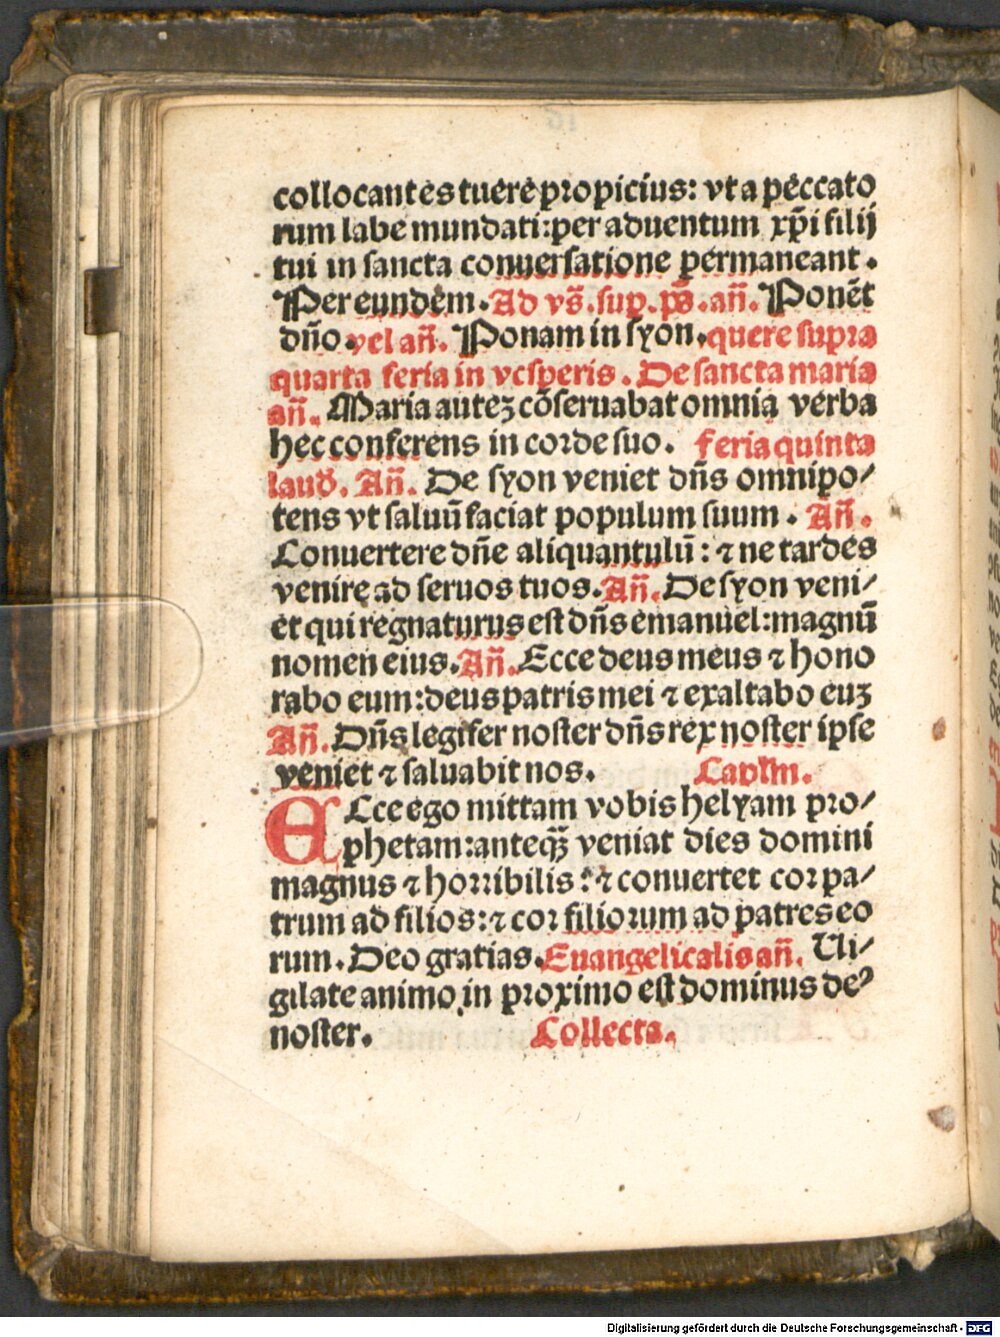 collocantes tuere propicius: vt a peccato
rum labe mundati: per aduentum xp̄i filij
tui in sancta conuersatione permaneant.
Per eundem. Ad vs̄. sup. ps̄. an̄. Ponēt
dn̄o. vel an̄. Ponam in syon. quere supra
quarta feria in vesperis. De sancta maria
an̄. Maria auteʒ cōseruabat omnia verba
hec conferens in corde suo. Feria quinta
laud̄. An̄. De syon veniet dn̄s omnipo/
tens vt saluū faciat populum suum. An̄.
Conuertere dn̄e aliquantulū: ⁊ ne tardes
venire ad seruos tuos. An̄. De syon veni/
et qui regnaturus est dn̄s emanuel: magnū
nomen eius. An̄. Ecce deus meus ⁊ hono
rabo eum: deus patris mei ⁊ exaltabo euʒ
An̄. Dn̄s legifer noster dn̄s rex noster ipse
veniet ⁊ saluabit nos. Capl̄m.
ECce ego mittam vobis helyam pro/
phetam: anteqʒ̄ veniat dies domini
magnus ⁊ horribilis: ⁊ conuertet cor pa/
trum ad filios: ⁊ cor filiorum ad patres eo
rum. Deo gratias. Euangelicalis an̄. Ui/
gilate animo in proximo est dominus de⁹
noster. Collecta.
Digitalisierung gefördert durch die Deutsche Forschungsgemeinschaft - DFG